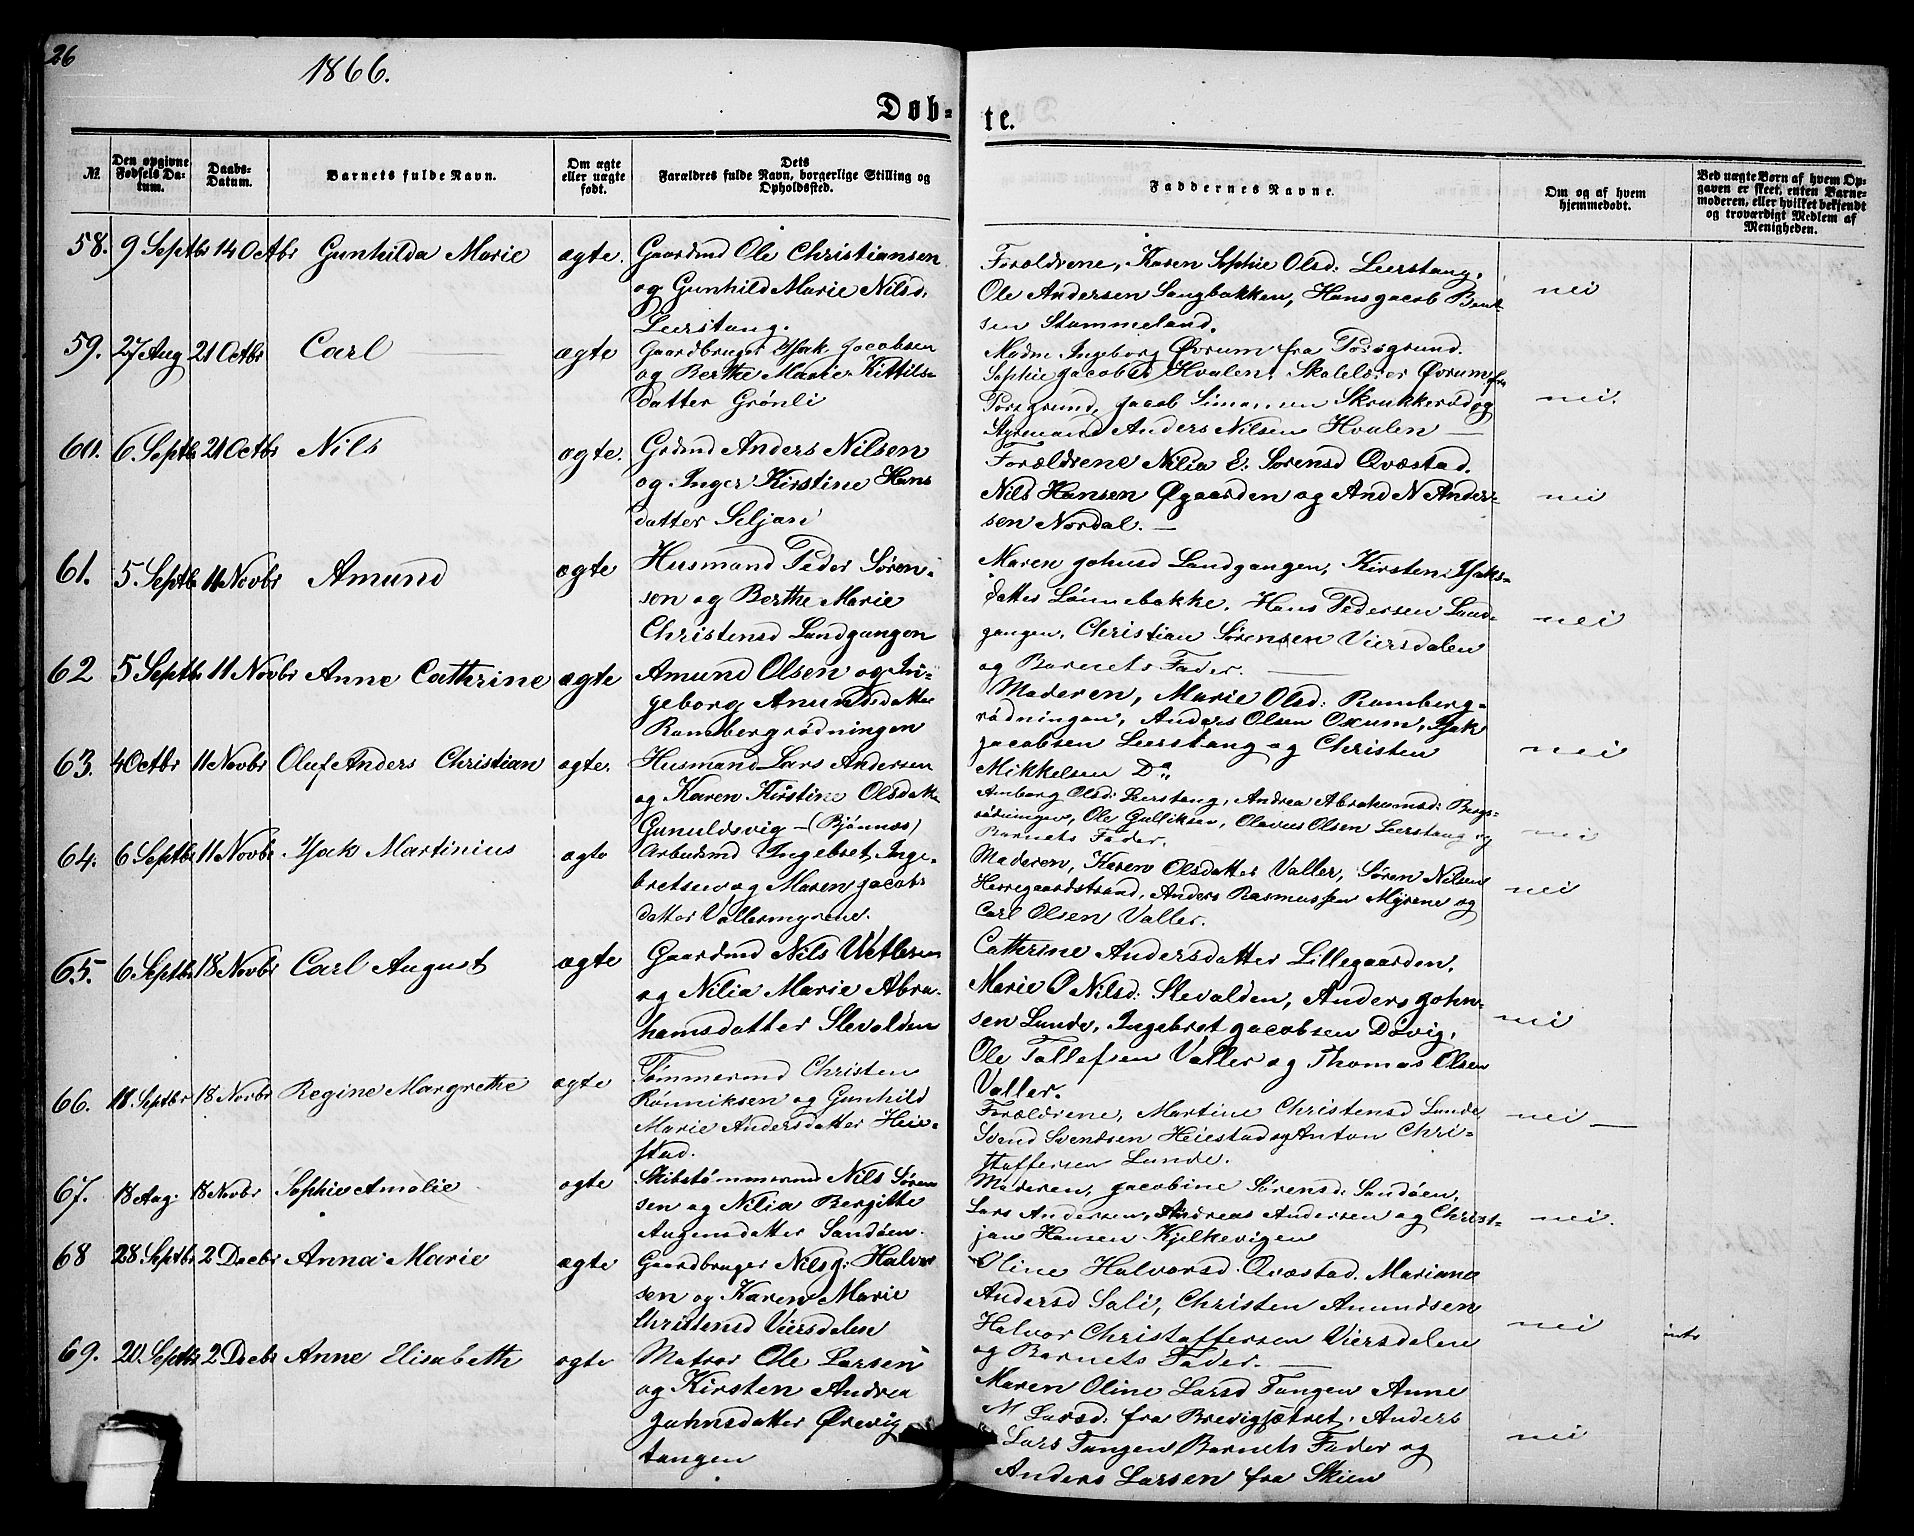 26
1866.
Døb-
te.
№
Den opgivne Fødsels Da-tum.
Daabs-Datum.
Barnets fulde Navn.
Om ægte eller uægte født.
Dets Forældres fulde Navn, borgerlige Stilling og Opholdsted.
Faddernes Navne.
Om og af hvem hjemmedøbt.
Ved uægte Børn af hvem Op-gaven er skeet, enten Barne-moderen, eller hvilket bekjendt og troværdigt Medlem af Menigheden.
58. 9 Septbr 14 Octbr Gunhilda Marie ægte.
Gaardmd Ole Christiansen
og Gunhild Marie Nilsd.
Leerstang.
Forældrene, Karen Sophie Olsd: Leerstang,
Ole Andersen Langbakken, Hans Jacob Bent-
sen Stammeland.
nei
59. 27 Aug 21 Octbr Carl ægte
Gaardbruger Isak Jacobsen
og Berthe Marie Kittils-
datter Grønli
Madm Ingeborg Øvrum fra Porsgrund.
Sophie Jacobd Hvalen, Skolelærer Øvrum fra
Porsgrund, Jacob Simonsen Skrukkerød og
Styrmand Anders Nilsen Hvalen —
nei.
60. 6. Septbr 21 Octbr Nils ægte.
Grdmd Anders Nilsen
og Inger Kirstine Hans
datter Seljan
Forældrene Nilia E. Sørensd Qvæstad.
Nils Hansen Øgaarden og And N Ander-
sen Nordal. —
nei
61. 5. Septbr 11 Novbr Amund ægte
Husmand Peder Søren-
sen og Berthe Marie
Christensd Landgangen
Maren Johnsd Landgangen, Kirsten Isaks-
datter Lønnebakke, Hans Pedersen Land-
gangen, Christian Sørensen Viersdalen
og Barnets Fader. —
nei
62 5 Septbr 11 Novbr Anne Cathrine ægte
Amund Olsen og In-
geborg Amundsdatter
Rambergrødningen
Moderen, Marie Olsd: Ramberg-
rødningen, Anders Olsen Oxum, Isak
Jacobsen Leerstang og Christen
Mikkelsen Do
nei
63. 4 Octbr 11 Novbr Oluf Anders Christian ægte.
Husmand Lars Andersen
og Karen Kirstine Olsdatter
Gunuldsvig — (Bjønnæs)
Amborg Olsd: Leerstang, Andrea Abrahamsd: Bergs-
rødningen, Ole Gulliksen, Olavus Olsen Leerstang og
Barnets Fader.
nei
64. 6 Septbr 11 Novbr Isak Martinius ægte
Arbeidsmd Ingebret Inge-
bretsen og Maren Jacobs
datter Vallermyrene.
Moderen, Karen Olsdatter Valler, Søren Nilsen
Herregaardstrand, Anders Rasmussen Myrene og
Carl Olsen Valler.
nei
65. 6 Septbr 18 Novbr Carl August ægte
Gaardmd Nils Vetlesen
og Nilia Marie Abra-
hamsdatter Slevolden
Cathrine Andersdatter Lillegaarden,
Marie O Nilsd: Slevolden, Anders John-
sen Lunde, Ingebret Jacobsen Døvig,
Ole Tollefsen Valler og Thomas Olsen
Valler.
nei
66. 18 Septbr 18 Novbr Regine Margrethe ægte
Tømmermd Christen
Rønniksen og Gunhild
Marie Andersdatter Heie-
stad.
Forældrene, Martine Christensd Lunde
Svend Svendsen Heiestad og Anton Chri-
stoffersen Lunde.
nei —
67. 18 Aug. 18 Novbr Sophie Amalie ægte
Skibstømmermd Nils Søren
sen og Nilia Bergitte
Augensdatter Sandøen.
Moderen, Jacobine Sørensd: Sandøen,
Lars Andersen, Andreas Andersen og Christ-
jan Hansen Kjelkevigen
nei.
68 28 Septbr 2 Decbr Anna Marie ægte
Gaardbruger Nils J: Halvor
sen og Karen Marie
Christensd Viersdalen
Oline Halvorsd. Qvæstad. Mariane
Andersd Sali, Christen Amundsen
Halvor Christoffersen Viersdalen
og Barnets Fader. —
nei
69. 20 Septbr 2 Decbr Anne Elisabeth ægte
Matros Ole Larsen
og Kirsten Andrea
Johnsdatter Ørevig
tangen
Maren Oline Larsd Tangen Anne
M Larsd. fra Brevigsætret, Anders
Lars Tangen Barnets Fader og
Anders Larsen fra Skien
nei